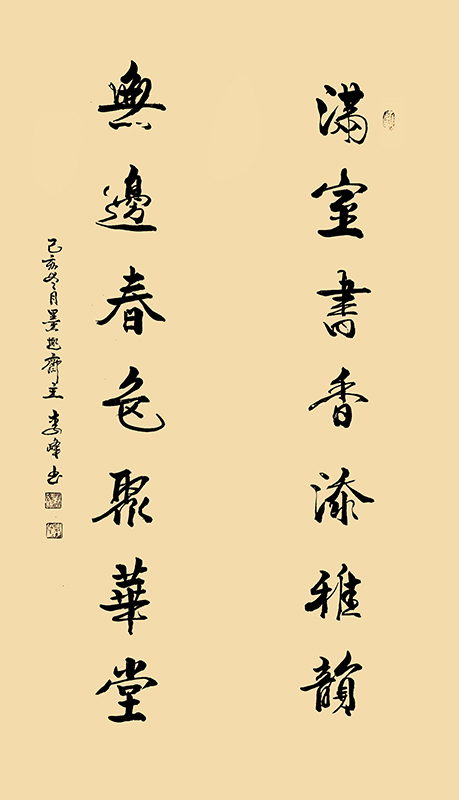 滿室書香添雅韻
無邊春色聚華堂
己亥冬月墨趣齋主李峰书